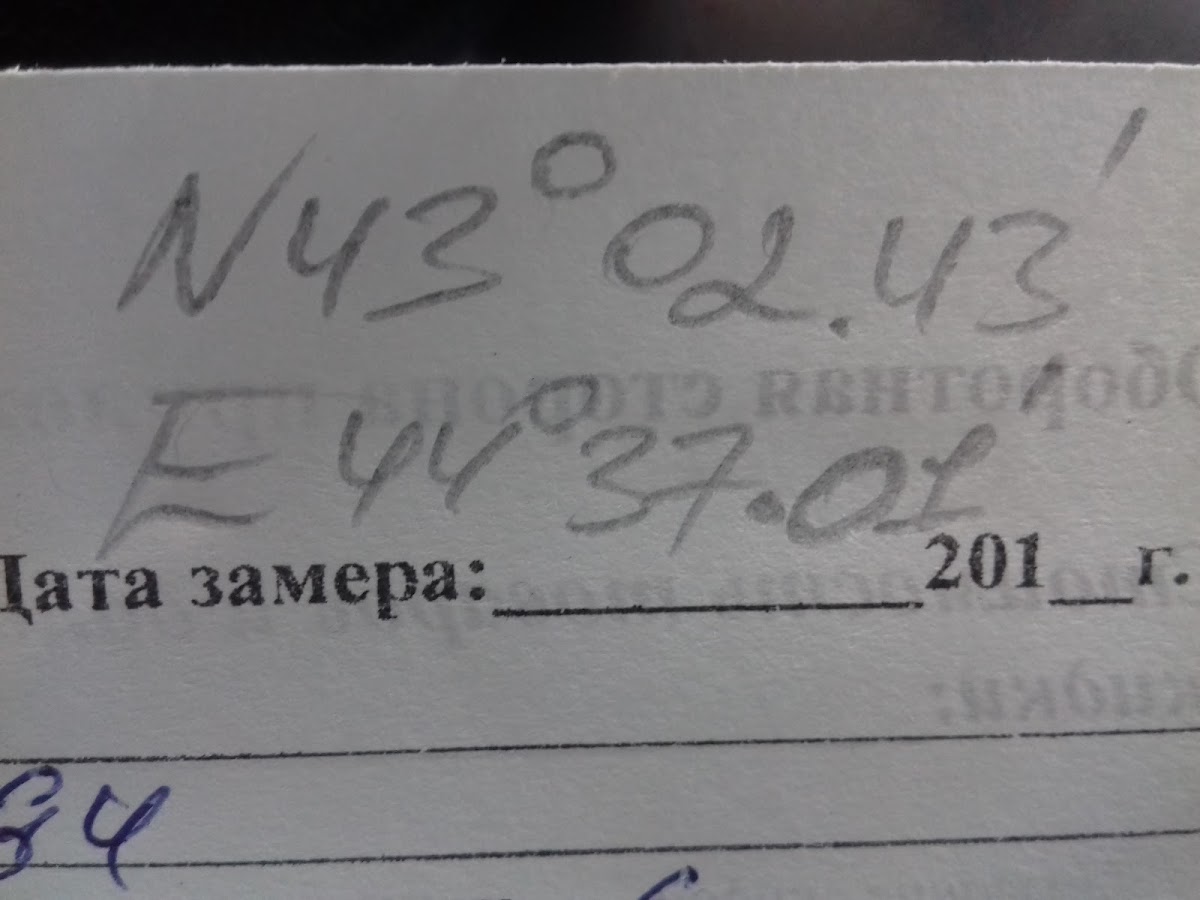 N43° 02.43'
E44° 37.01'
Дата замера:____________201__г.
34